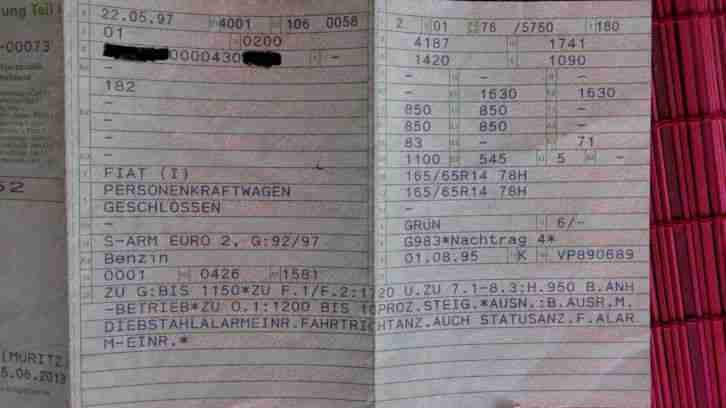 ung Teil I
-00073
52
(MÜRITZ
5.06.2013
22.05.97 4001 106 0058
01 0200
0000430 -
-
182
-
-
-
-
FIAT (I)
PERSONENKRAFTWAGEN
GESCHLOSSEN
-
S-ARM EURO 2, G:92/97
Benzin
0001 0426 1581
2 01 76 /5750 180
4187 1741
1420 1090
- - -
- 1630 1630
850 850 -
850 850 -
83 - 71
1100 545 5 -
165/65R14 78H
165/65R14 78H
-
-
GRÜN 6/-
G983*Nachtrag 4*
01.08.95 K VP890689
ZU G:BIS 1150*ZU F.1/F.2:1720 U.ZU 7.1-8.3:H.950 B.ANH
-BETRIEB*ZU O.1:1200 BIS 10PROZ.STEIG.*AUSN.:B.AUSR.M.
DIEBSTAHLALARMEINR.FAHRTRICHTANZ.AUCH STATUSANZ.F.ALAR
M-EINR.*